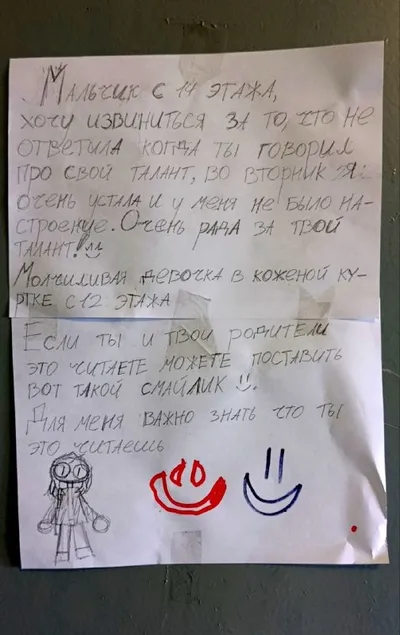 Мальчик с 14 этажа,
хочу извиниться за то, что не
ответила когда ты говорил
про свой талант, во вторник я
очень устала и у меня не было на-
строение. Очень рада за твой
талант!
Молчиливая девочка в коженой ку-
ртке с 12 этажа
Если ты и твои родители
это читаете можете поставить
вот такой смайлик
Для меня важно знать что ты
это читаешь